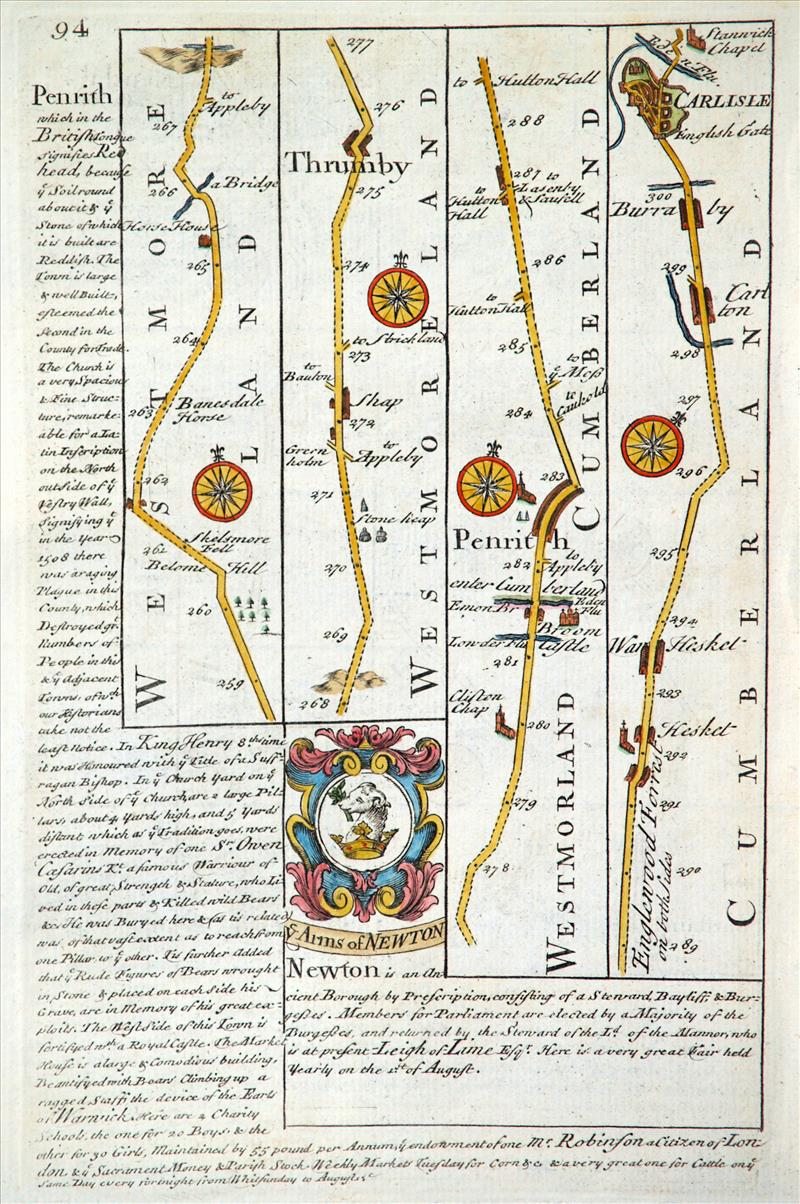 94
Penrith
which in the
British tongue
signifies Red
head, because
yͤ Soil round
about it & yͤ
Stone of which
it is built are
Reddish. The
Town is large
& well Built,
esteemed the
Second in the
County for Trade.
The Church is
a very Spacious
& Fine Struc-
ture, remark-
able for a La-
tin Inscription
on the North
outside of yͤ
Vestry Wall,
Signifying yͭ
in the Year
1598 there
was a raging
Plague in this
County, which
Destroyed gͬ
Numbers of
People in this
& yͤ adjacent
Towns, of wͨʰ
our Historians
take not the
least Notice. In King Henry 8ᵗʰˢ time
it was Honoured with yͤ Title of a Suff-
ragan Bishop. In yͤ Church Yard on yͤ
North Side of yͤ Church, are 2 large Pil-
lars, about 4 Yards high, and 5 Yards
distant which as yͤ Tradition goes, were
erected in Memory of one Sͬ. Owen
Cæsarius Kᵗ. a famous Warriour of
Old, of great Strength & Stature, who Li-
ved in these parts & Killed wild Bears
&c. He was Buryed here & (as tis related)
was of that vast extent as to reach from
one Pillar to yͤ other. Tis further added
that yͤ Rude Figures of Bears wrought
in Stone & placed on each Side his
Grave, are in Memory of his great ex-
ploits. The West Side of this Town is
fortifyed wͭʰ a Royal Castle. The Market
House is a large & Comodious building,
Beautifyed with Boars Climbing up a
ragged Staff yͤ device of the Earls
of Warwick. Here are 2 Charity
Schools, the one for 20 Boys, & the
other for 30 Girls, Maintained by 55 pound per Annum, yͤ endowment of one Mͬ. Robinson a Citizen of Lon-
don & yͤ Sacrament Money & Parish Stock. Weekly Markets Tuesday for Corn &c. & a very great one for Cattle on yͤ
Same Day every fortnight from Whitsunday to August 1ˢᵗ
WESTMORE
LAND
to
Appleby
267
266
a Bridge
Horse House
265
264
Banesdale
Horse
263
262
Skelsmore
Fell
261
Below
Hill
260
259
277
276
Thrumby
275
274
to Strickland
273
to
Baulon
Shap
272
Green
holm
to
Appleby
271
Stone heap
270
269
268
WESTMORELAND
yͤ Arms of NEWTON
to
Hutton Hall
288
287
to
Lasenby
& Saufell
to
Hutton
Hall
286
to
Hutton Hall
285
to
yͤ Mess
to
Caukold
284
283
Penrith
282
to
Appleby
enter Cumberland
Emon Br
Eden
Flu
Broom
Castle
Lowder Flu
281
Clifton
Chap
280
279
278
CUMBERLAND
WESTMORLAND
Stanwick
Chapel
Eden Flu.
CARLISLE
English Gate
300
Burra by
299
Carl
ton
298
297
296
295
294
Wan Hesket
293
Hesket
292
291
290
289
Englewood Forrest
on both Sides
CUMBERLAND
Newton is an An-
cient Borough by Prescription, consisting of a Steward, Bayliff, & Bur-
gesses. Members for Parliament are elected by a Majority of the
Burgesses, and returned by the Steward of the Lᵈ. of the Mannor, who
is at present Leigh of Lime Esqͬ. Here is a very great Fair held
Yearly on the 1ˢᵗ of August.